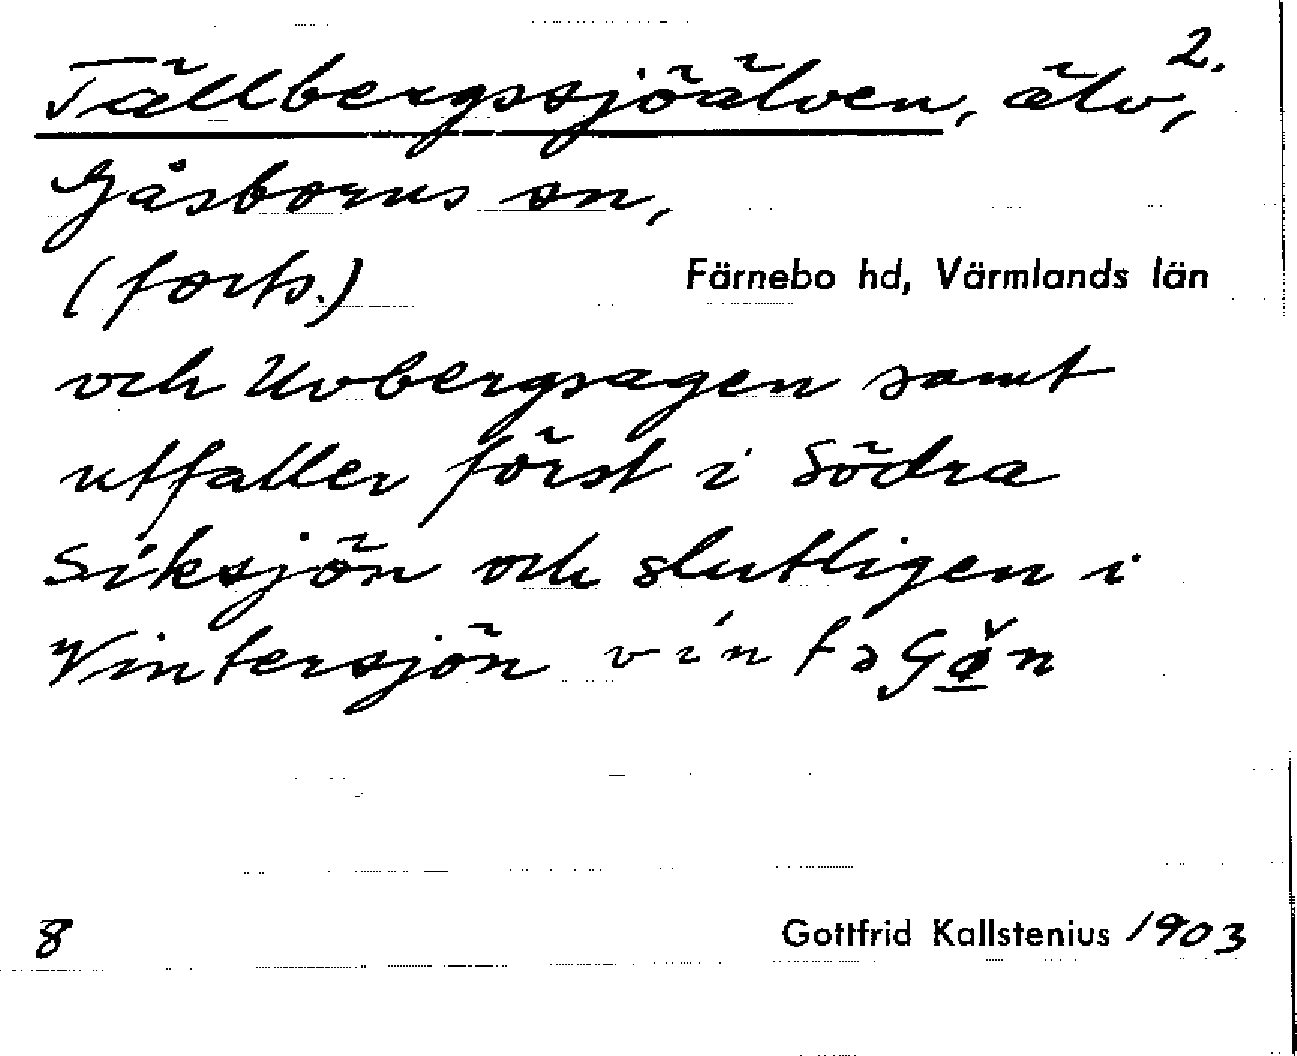 2.
Tällbergssjöälven, älv,
Gåsborns sn,
(forts.)
Färnebo hd, Värmlands län
och Uvbergsagen samt
utfaller först i Södra
Siksjön och slutligen i
Vintersjön
8
Gottfrid Kallstenius 1903